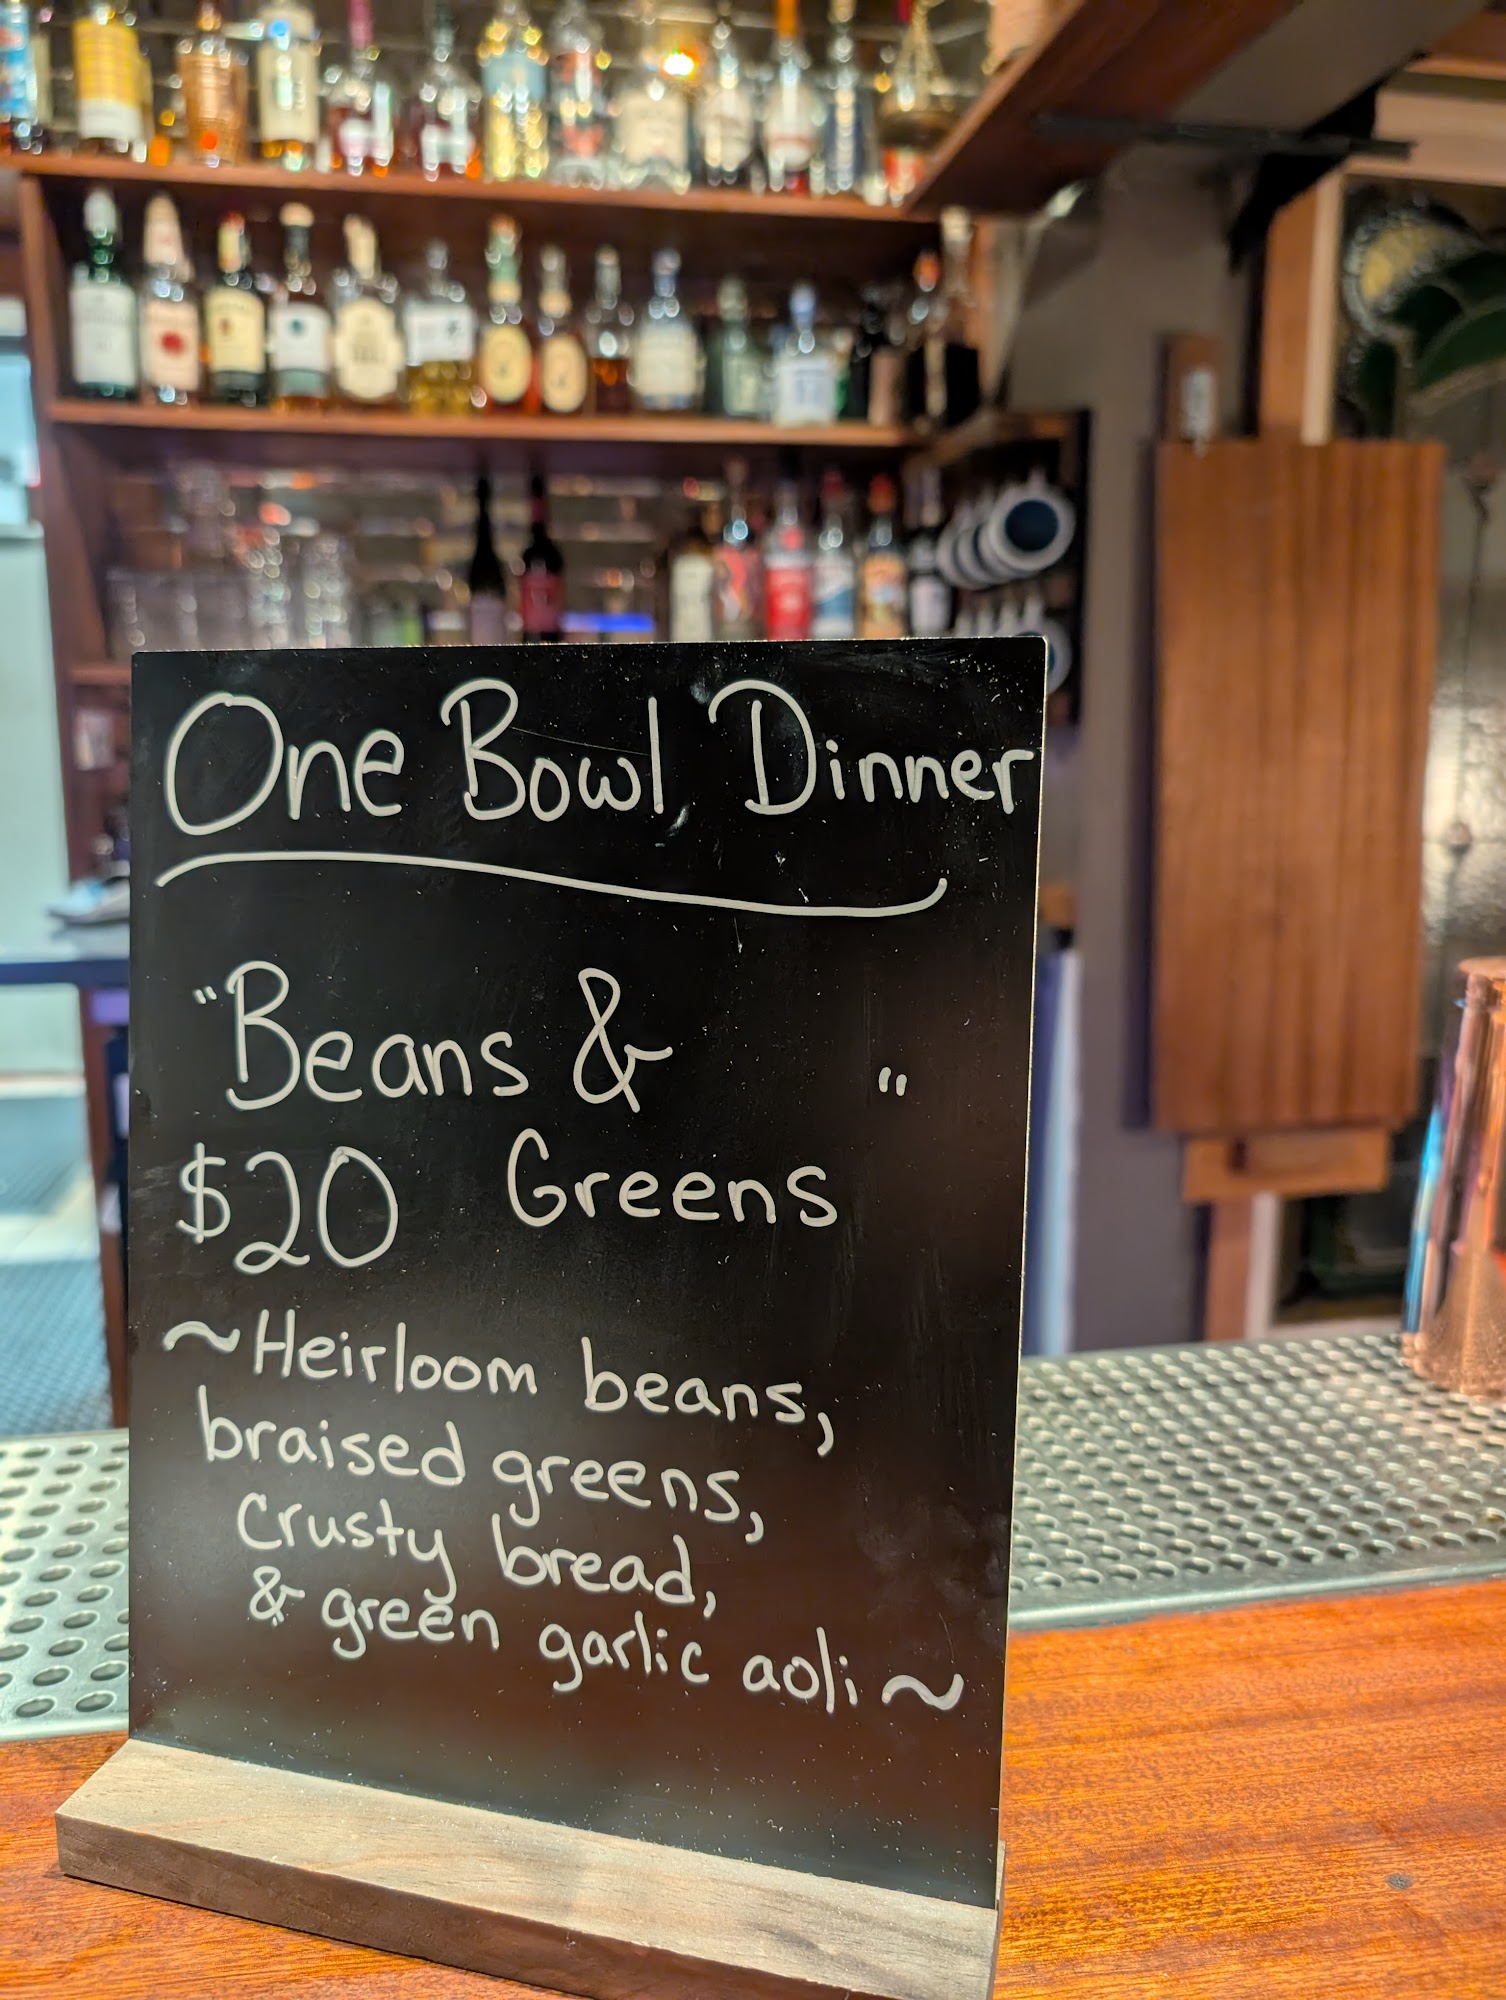 One Bowl Dinner
"Beans &
Greens"
$20
~Heirloom beans,
braised greens,
crusty bread,
& green garlic aoli~